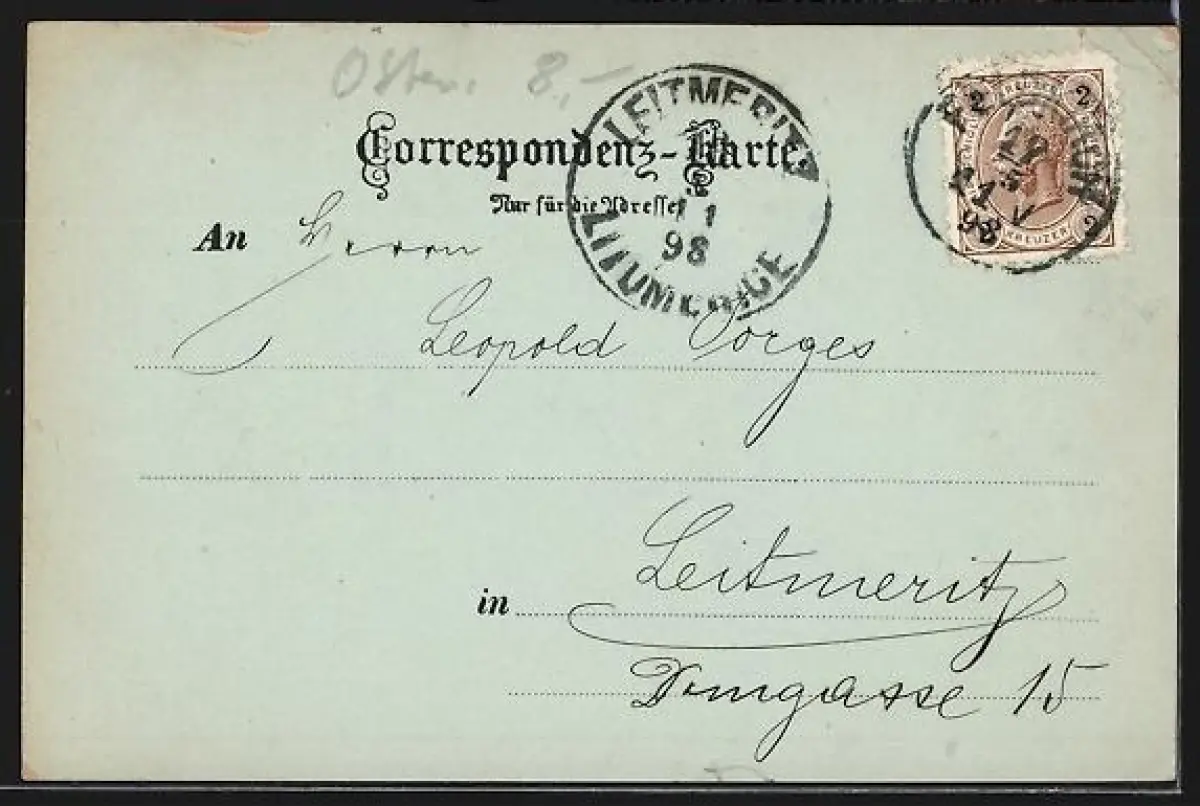 Oster. 8,-
Correspondenz-Karte.
Nur für die Adresse
LEITMERITZ
11
98
LITOMĚŘICE
2 KREUZER 2
98
2 KREUZER 2
An Herrn
Leopold Porges
in Leitmeritz
Domgasse 15